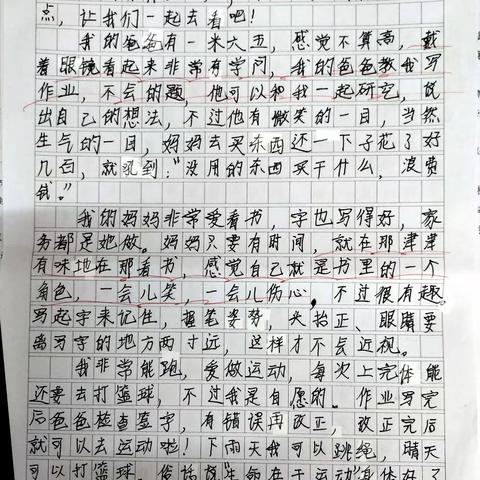 点，让我们一起去看吧！
我的爸爸有一米大五，感觉不算高，戴
着眼镜看起来非常有学问，我的爸爸教我写
作业，不会的题，他可以和我一起研究，说
出自己的想法，不过他有微笑的一目，当然
生气的一目，妈妈去买东西还一下子花了好
几百，就吼到："没用的东西买干什么，浪费
钱。"
我的妈妈非常爱看书，字也写得好，家
务都是她做。妈妈只要有时间，就在那津津
有味地在那看书，感觉自己就是书里的一个
角色，一会儿笑，一会儿伤心，不过很有趣。
写起字来记住，握笔姿势，头抬正、眼睛要
离写字的地方两寸远，这样才不会近视。
我非常能跑，爱做运动，每次上完体能
还要去打篮球，不过我是自愿的。作业写完
后爸爸检查签字，有错误再改正，改正完后
就可以去运动啦！下雨天我可以跳绳，晴天
可以打篮球。俗话说"生命在于运动"身体好了